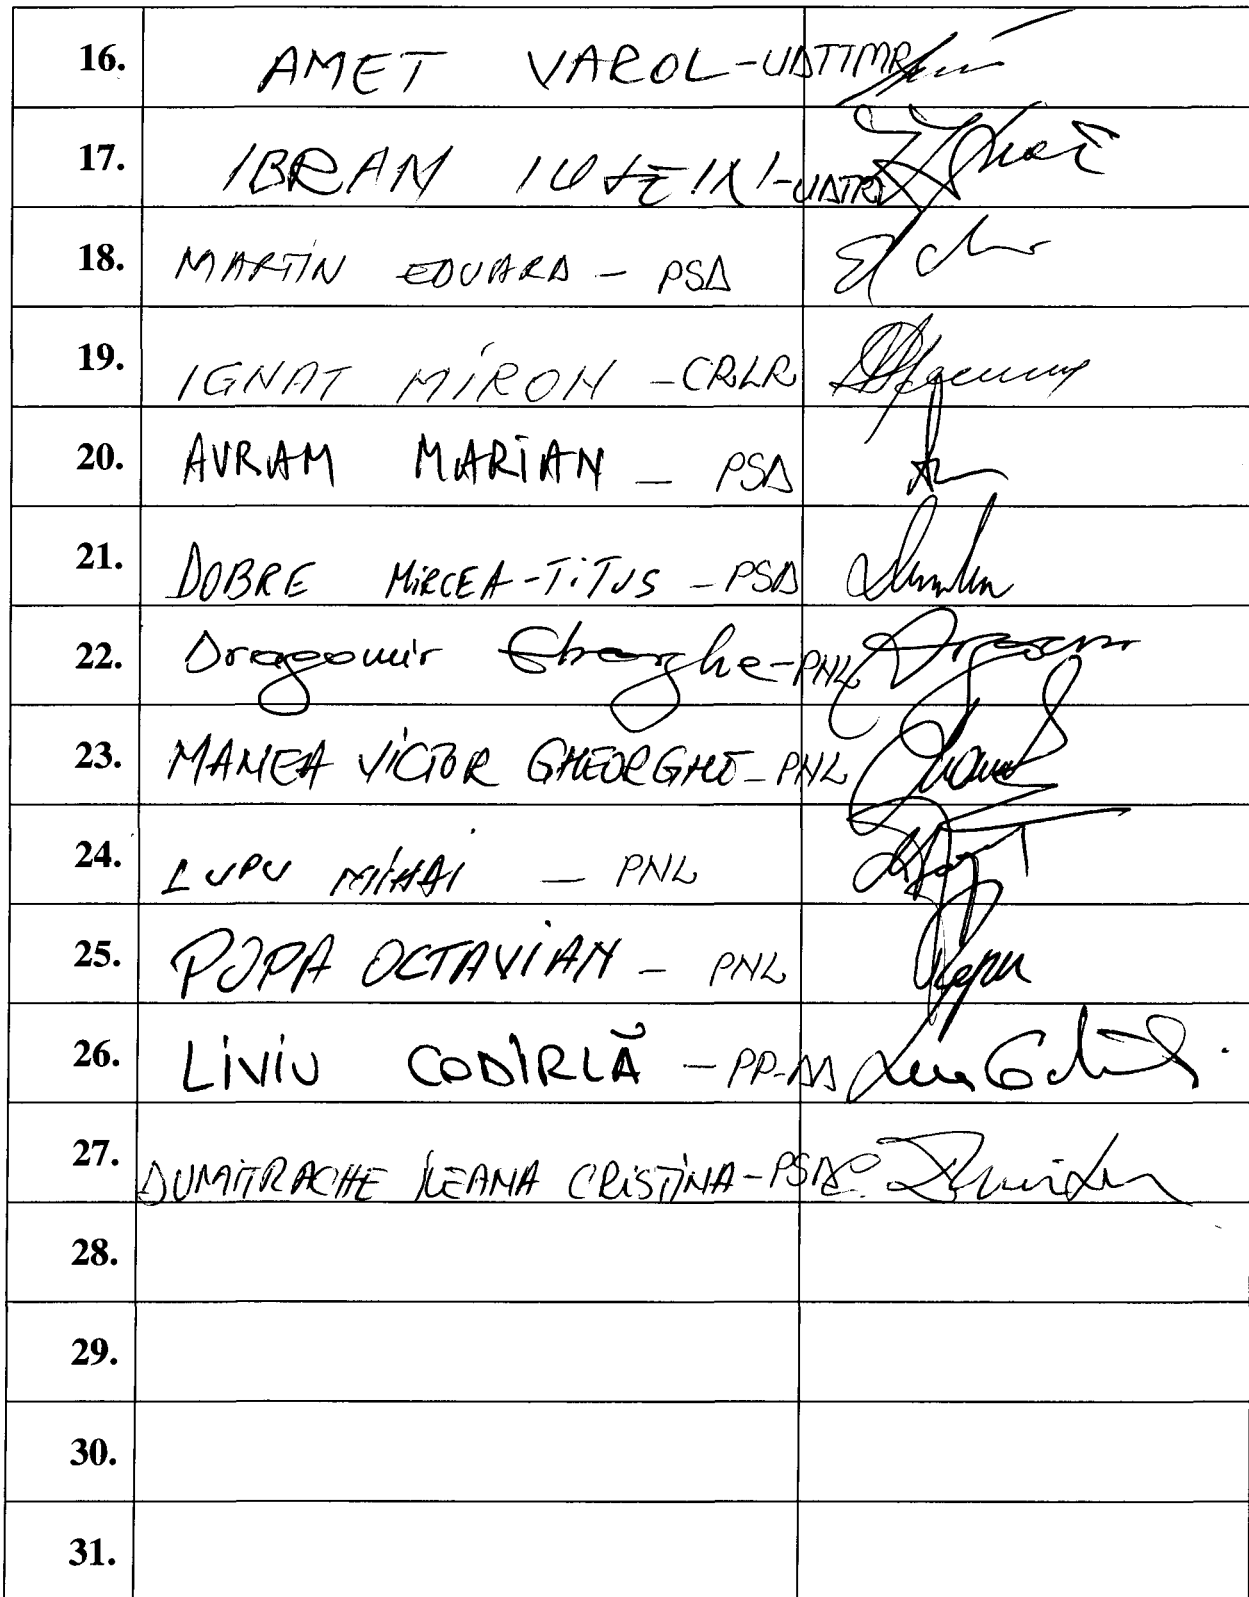 16. AMET VAROL - UDTTMR
17. IBRAM IUSEIN - UDTR
18. MARTIN EDUARD - PSD
19. IGNAT MIRON - CRLR
20. AVRAM MARIAN - PSD
21. DOBRE MIRCEA-TITUS - PSD
22. Dragomir Gheorghe - PNL
23. MANEA VICTOR GHEORGHE - PNL
24. LUPU MIHAI - PNL
25. POPA OCTAVIAN - PNL
26. LIVIU CODÎRLĂ - PP-DD
27. DUMITRACHE ILEANA CRISTINA - PSD
28.
29.
30.
31.